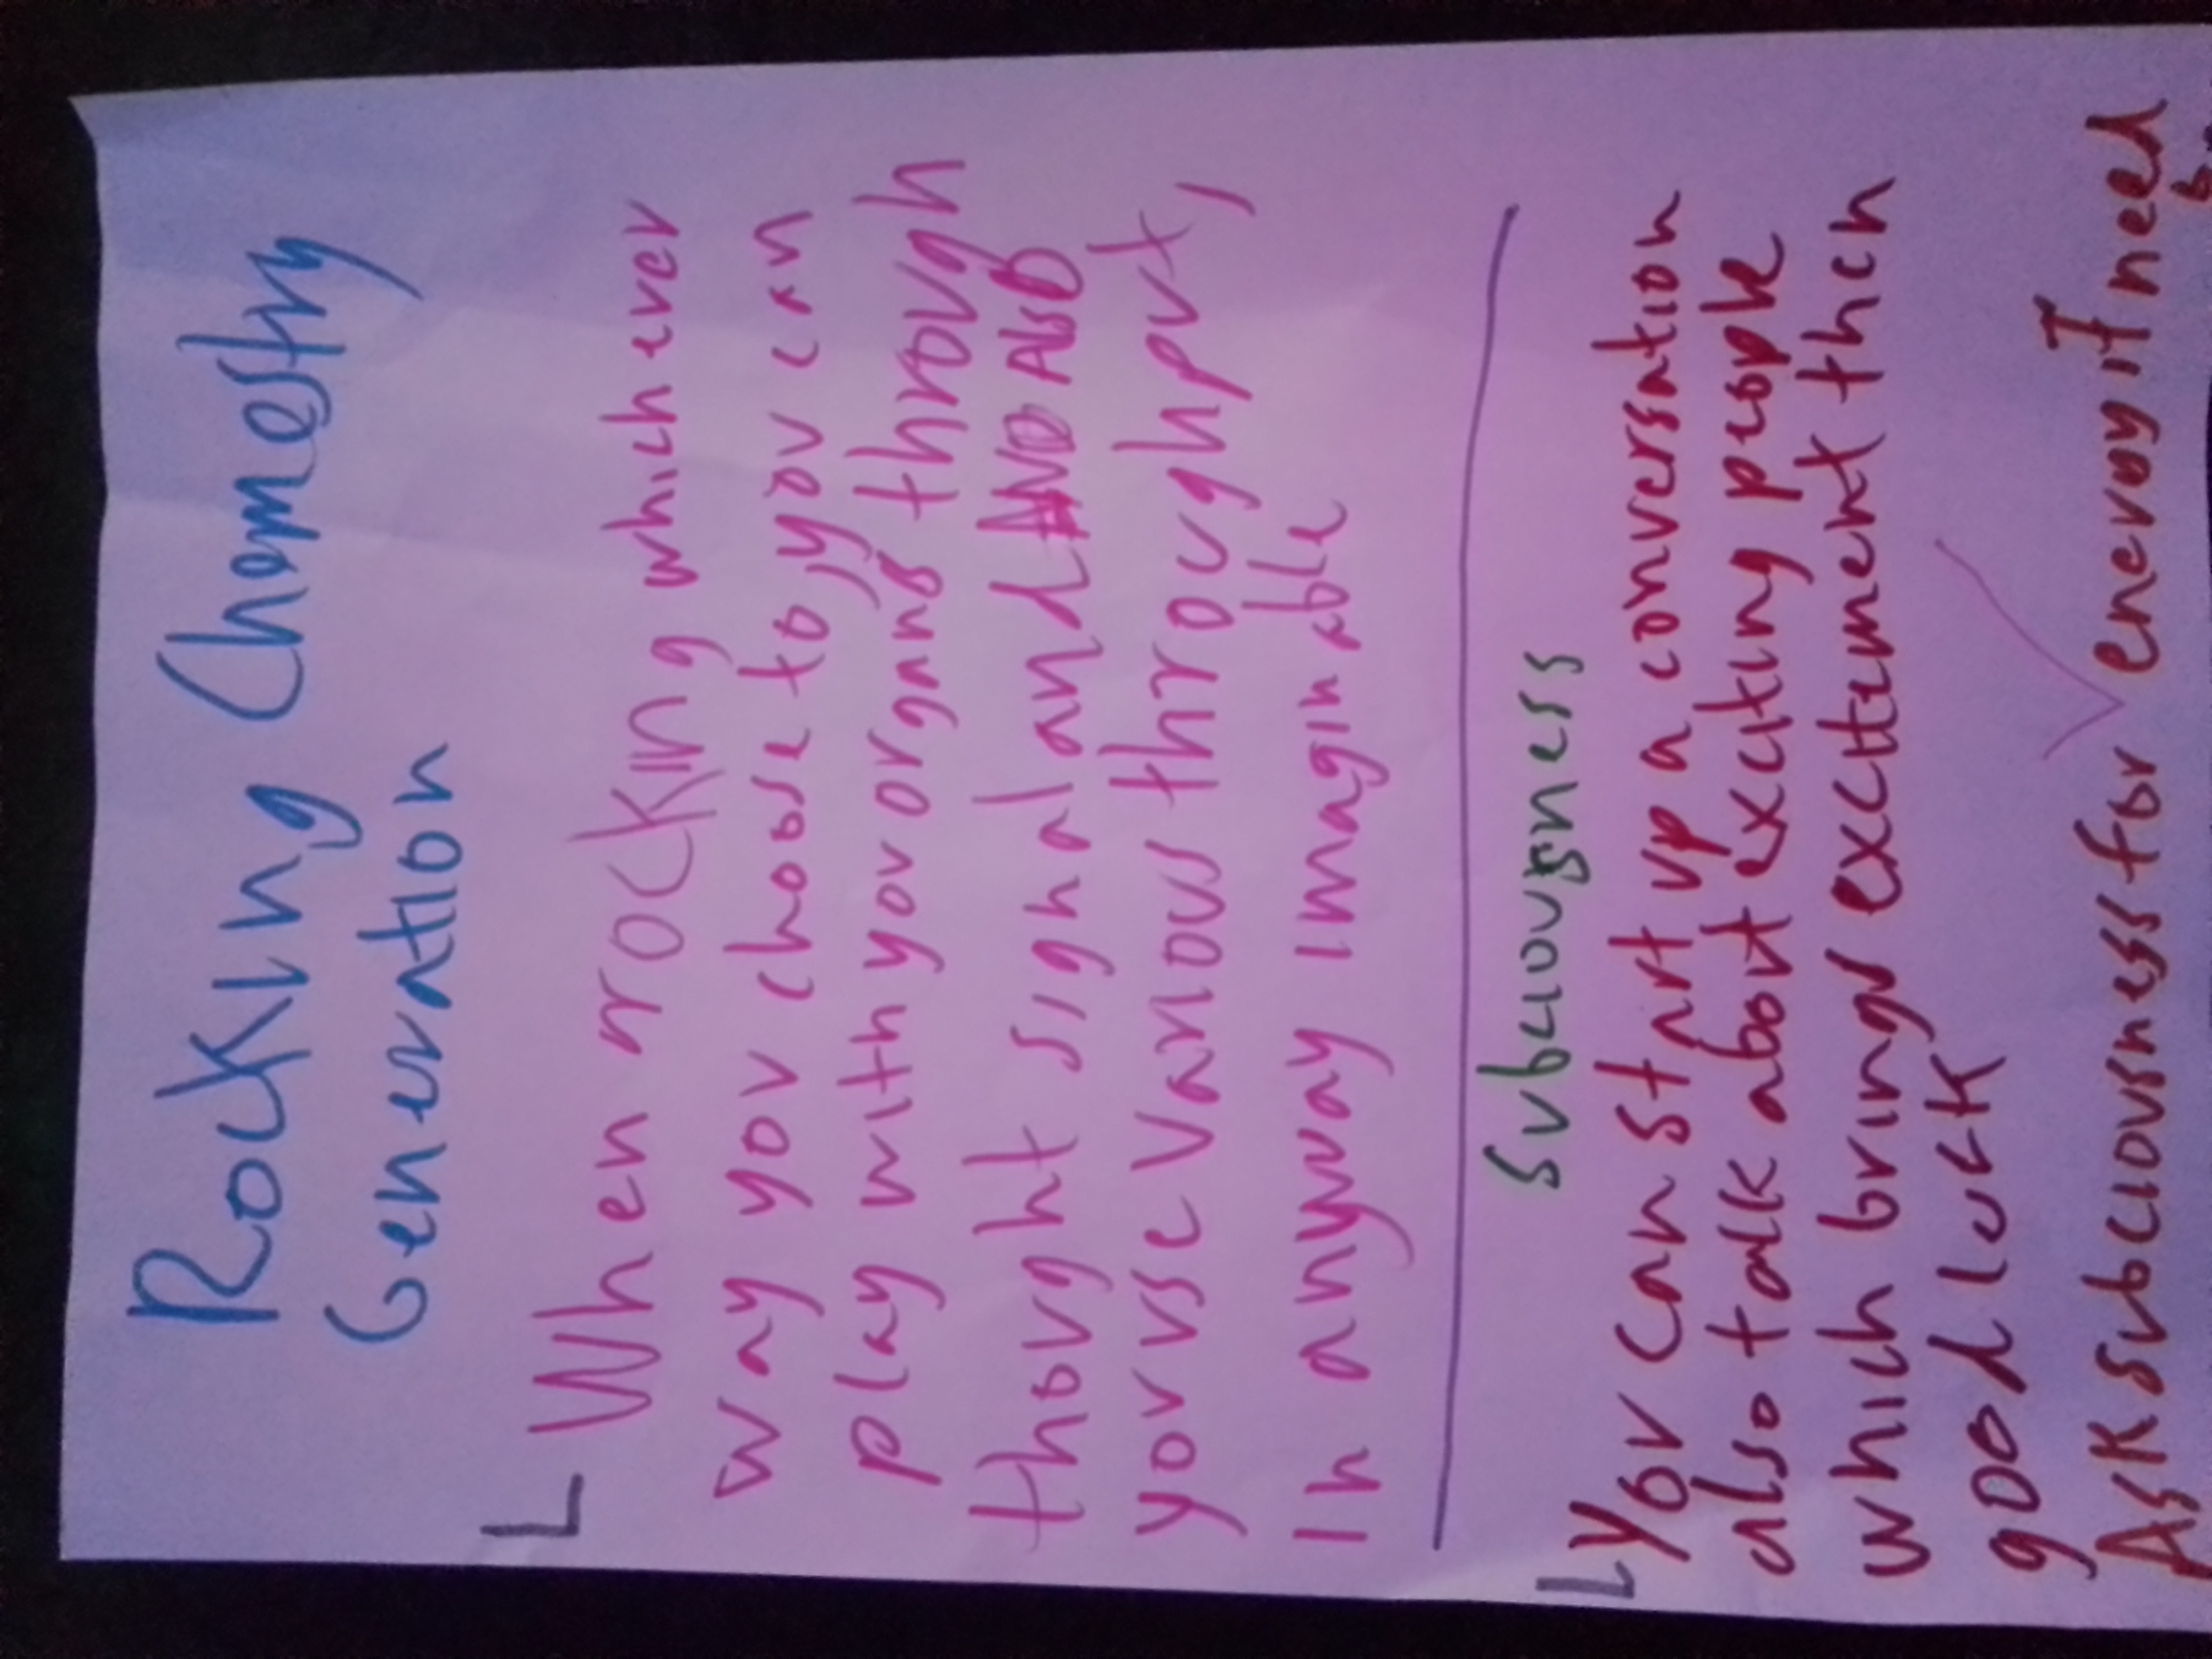 Rocking Chamestry
Generation
When rocking which ever
way you chose to, you can
play with you organs through
thought signal and AND ASB
youse various through put,
in anyway imaginable
Subciousness
You can start up a conversation
also talk about exciting people
which brings excitement then
good luck
Ask subciousness for energy if need